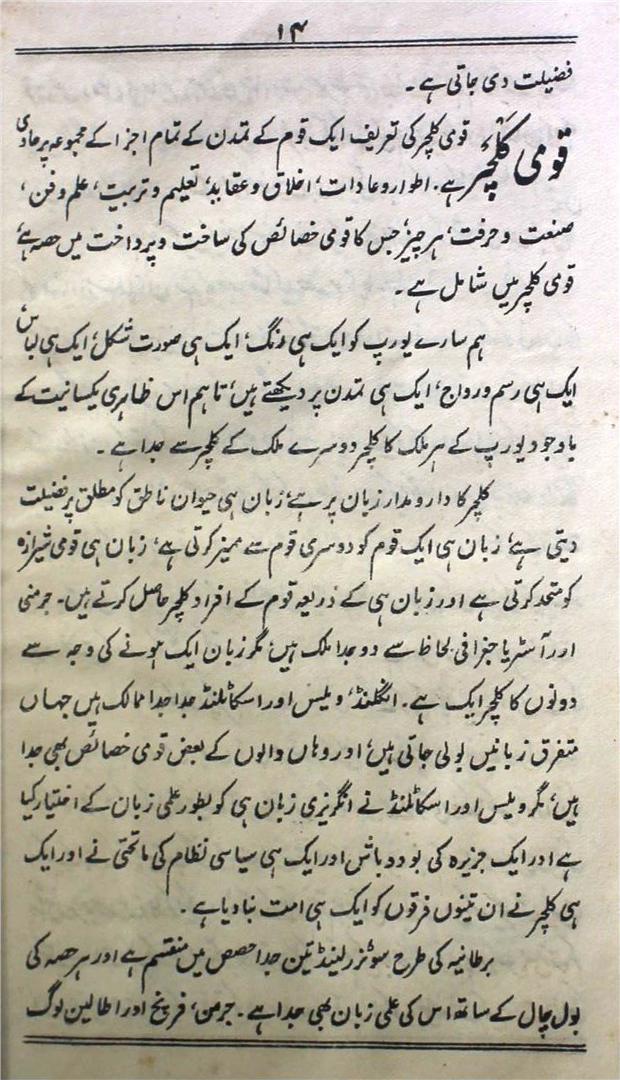 ۱۴
فضیلت دی جاتی ہے۔
قومی کلچر قومی کلچر کی تعریف ایک قوم کے تمدن کے تمام اجزا کے مجموعہ پر حاوی
ہے۔ اطوار و عادات، اخلاق و عقاید، تعلیم و تربیت، علم و فن،
صنعت و حرفت، ہر چیز جس کا قومی خصائص کی ساخت و پرداخت میں حصہ ہے،
قومی کلچر میں شامل ہے۔
ہم سارے یورپ کو ایک ہی رنگ، ایک ہی صورت شکل، ایک ہی لباس،
ایک ہی رسم و رواج، ایک ہی تمدن پر دیکھتے ہیں، تاہم اس ظاہری یکسانیت کے
باوجود یورپ کے ہر ملک کا کلچر دوسرے ملک کے کلچر سے جدا ہے۔
کلچر کا دارومدار زبان پر ہے، زبان ہی حیوان ناطق کو مطلق پر فضیلت
دیتی ہے، زبان ہی ایک قوم کو دوسری قوم سے ممیز کرتی ہے، زبان ہی قومی شیرازہ
کو متحد کرتی ہے اور زبان ہی کے ذریعہ قوم کے افراد کلچر حاصل کرتے ہیں۔ جرمنی
اور آسٹریا جغرافی لحاظ سے دو جدا ملک ہیں، مگر زبان ایک ہونے کی وجہ سے
دونوں کا کلچر ایک ہے۔ انگلنڈ، ویلس اور اسکاٹلنڈ جدا جدا ممالک ہیں جہاں
متفرق زبانیں بولی جاتی ہیں، اور وہاں والوں کے بعض قومی خصائص بھی جدا
ہیں، مگر ویلس اور اسکاٹلنڈ نے انگریزی زبان ہی کو بطور علمی زبان کے اختیار کیا
ہے اور ایک جزیرہ کی بود و باش اور ایک ہی سیاسی نظام کی ماتحتی نے اور ایک
ہی کلچر نے ان تینوں فرقوں کو ایک ہی امت بنا دیا ہے۔
برطانیہ کی طرح سوئزرلینڈ تین جدا حصص میں منقسم ہے اور ہر حصہ کی
بول چال کے ساتھ اس کی علمی زبان بھی جدا ہے۔ جرمن، فرینچ اور اطالین لوگ